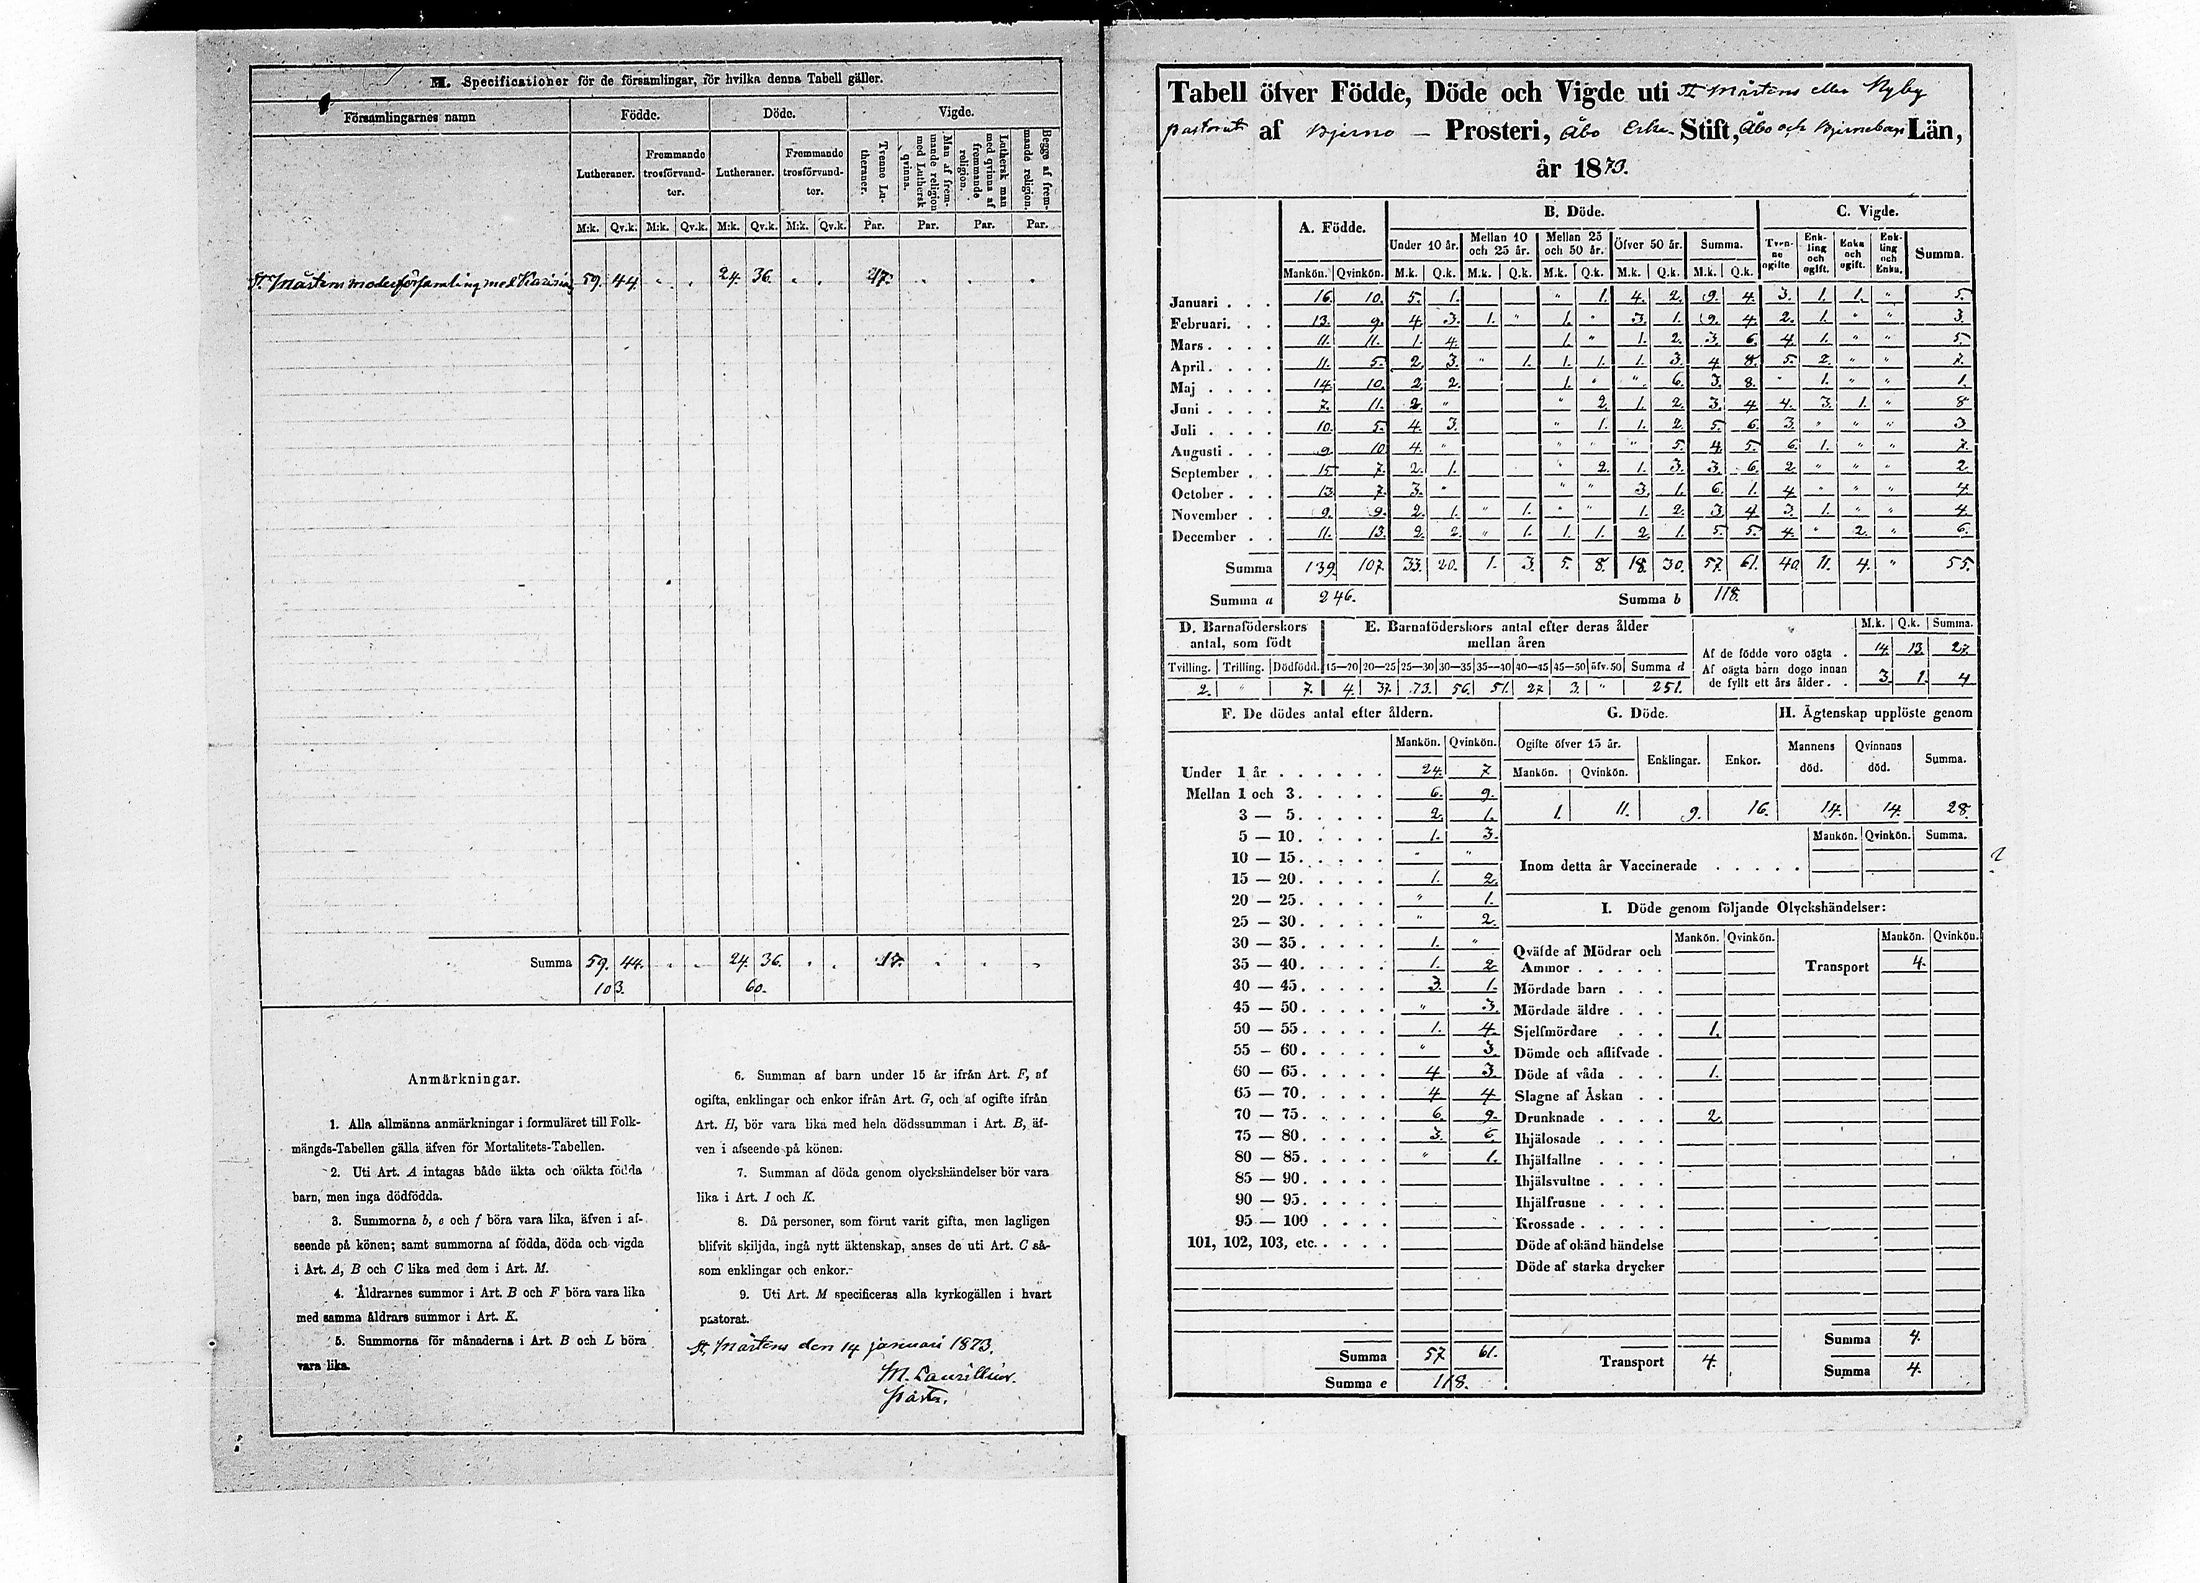 M. Specificationer för de församlingar, för hvilka denna Tabell gäller.
Församlingarnes namn | Födde. | Döde. | Vigde.
Lutheraner. | Fremmande trosförvandter. | Lutheraner. | Fremmande trosförvandter. | Tvenne Lutheraner. | Man af fremmande religion med Luthersk qvinna. | Luthersk man med qvinna af fremmande religion. | Begge af fremmande religion.
M:k. | Qv.k. | M:k. | Qv.k. | M:k. | Qv.k. | M:k. | Qv.k. | Par. | Par. | Par. | Par.
St. Mårtens moderförsamling med Karinais 59. 44. " " 24. 36. " " 17. " " "
Summa 59. 44. " " 24. 36. " " 17. " " "
103. 60.
Anmärkningar.
1. Alla allmänna anmärkningar i formuläret till Folk-
mängds-Tabellen gälla äfven för Mortalitets-Tabellen.
2. Uti Art. A intagas både äkta och oäkta födda
barn, men inga dödfödda.
3. Summorna b, e och f böra vara lika, äfven i af-
seende på könen; samt summorna af födda, döda och vigda
i Art. A, B och C lika med dem i Art. M.
4. Åldrarnes summor i Art. B och F böra vara lika
med samma åldrars summor i Art. K.
5. Summorna för månaderna i Art. B och L böra
vara lika.
6. Summan af barn under 15 år ifrån Art. F, af
ogifta, enklingar och enkor ifrån Art. G, och af ogifte ifrån
Art. H, bör vara lika med hela dödssumman i Art. B, äf-
ven i afseende på könen.
7. Summan af döda genom olyckshändelser bör vara
lika i Art. I och K.
8. Då personer, som förut varit gifta, men lagligen
blifvit skiljda, ingå nytt äktenskap, anses de uti Art. C så-
som enklingar och enkor.
9. Uti Art. M specificeras alla kyrkogällen i hvart
pastorat.
St. Mårtens den 14 januari 1873.
M. Laurellius.
Tabell öfver Födde, Döde och Vigde uti St Mårtens eller Nyby
pastorat af Bjerno — Prosteri, Åbo Erke- Stift, Åbo och Bjerneborgs Län,
år 1873.
A. Födde. | B. Döde. | C. Vigde.
Under 10 år. | Mellan 10 och 25 år. | Mellan 25 och 50 år. | Öfver 50 år. | Summa. | Tvenne ogifte | Enkling och ogift. | Enka och ogift. | Enkling och Enka. | Summa.
Mankön. | Qvinkön. | M.k. | Q.k. | M.k. | Q.k. | M.k. | Q.k. | M.k. | Q.k. | M.k. | Q.k.
Januari . . . 16. 10. 5. 1. " 1. 4. 2. 9. 4. 3. 1. 1. " 5.
Februari. . . 13. 9. 4. 3. 1. " 1. " 3. 1. 9. 4. 2. 1. " " 3.
Mars . . . . 11. 11. 1. 4. 1. " 1. 2. 3. 6. 4. 1. " " 5.
April . . . . 11. 5. 2. 3. " 1. 1. 1. 1. 3. 4. 8. 5. 2. " " 7.
Maj . . . . 14. 10. 2. 2. 1. " " 6. 3. 8. " 1. " " 1.
Juni . . . . 7. 11. 2. " " 2. 1. 2. 3. 4. 4. 3. 1. " 8
Juli . . . . 10. 5. 4. 3. " 1. 1. 2. 5. 6. 3. " " " 3
Augusti . . . 9. 10. 4. " " " " 5. 4. 5. 6. 1. " " 7.
September . . 15. 7. 2. 1. " 2. 1. 3. 3. 6. 2. " " " 2.
October . . . 13. 7. 3. " " " 3. 1. 6. 1. 4. " " " 4.
November . . 9. 9. 2. 1. " 1. " " 1. 2. 3. 4. 3. 1. " " 4.
December . . 11. 13. 2. 2. " 1. 1. 1. 2. 1. 5. 5. 4. " 2. " 6.
Summa 139. 107. 33. 20. 1. 3. 5. 8. 18. 30. 57. 61. 40. 11. 4. " 55.
Summa a 246. Summa b 118.
D. Barnaföderskors antal, som födt | E. Barnaföderskors antal efter deras ålder mellan åren | M.k. | Q.k. | Summa.
Tvilling. | Trilling. | Dödfödd. | 15—20 | 20—25 | 25—30 | 30—35 | 35—40 | 40—45 | 45—50 | öfv. 50 | Summa d
2. " 7. 4. 37. 73. 56. 51. 27. 3. " 251.
Af de födde voro oägta . 14. 13. 27.
Af oägta barn dogo innan
de fyllt ett års ålder . . 3. 1. 4
F. De dödes antal efter åldern.
Mankön. | Qvinkön.
Under 1 år . . . . . . 24. 7
Mellan 1 och 3 . . . . . 6. 9.
3 — 5 . . . . . 2. 1.
5 — 10 . . . . . 1. 3.
10 — 15 . . . . . " "
15 — 20 . . . . . 1. 2.
20 — 25 . . . . . " 1.
25 — 30 . . . . . " 2.
30 — 35 . . . . . 1. "
35 — 40 . . . . . 1. 2
40 — 45 . . . . . 3. 1.
45 — 50 . . . . . " 3.
50 — 55 . . . . . 1. 4.
55 — 60 . . . . . " 3.
60 — 65 . . . . . 4 3.
65 — 70 . . . . . 4 4
70 — 75 . . . . . 6. 9.
75 — 80 . . . . . 3. 6.
80 — 85 . . . . . " 1.
85 — 90 . . . . .
90 — 95 . . . . .
95 — 100 . . . .
101, 102, 103, etc. . . . .
Summa 57 61.
Summa e 118.
G. Döde.
Ogifte öfver 15 år. | Enklingar. | Enkor.
Mankön. | Qvinkön.
1. 11. 9. 16.
H. Ägtenskap upplöste genom
Mannens död. | Qvinnans död. | Summa.
14. 14. 28.
Mankön. | Qvinkön. | Summa.
Inom detta år Vaccinerade . . . . .
I. Döde genom följande Olyckshändelser:
Mankön. | Qvinkön. | Mankön. | Qvinkön.
Qväfde af Mödrar och
Ammor . . . . .
Mördade barn . . .
Mördade äldre . . .
Sjelfmördare . . . 1.
Dömde och aflifvade .
Döde af våda . . . 1.
Slagne af Åskan . .
Drunknade . . . . 2.
Ihjälosade . . . .
Ihjälfallne . . . .
Ihjälsvultne . . . .
Ihjälfrusne . . . .
Krossade . . . . .
Döde af okänd händelse
Döde af starka drycker
Transport 4.
Transport 4.
Summa 4.
Summa 4.